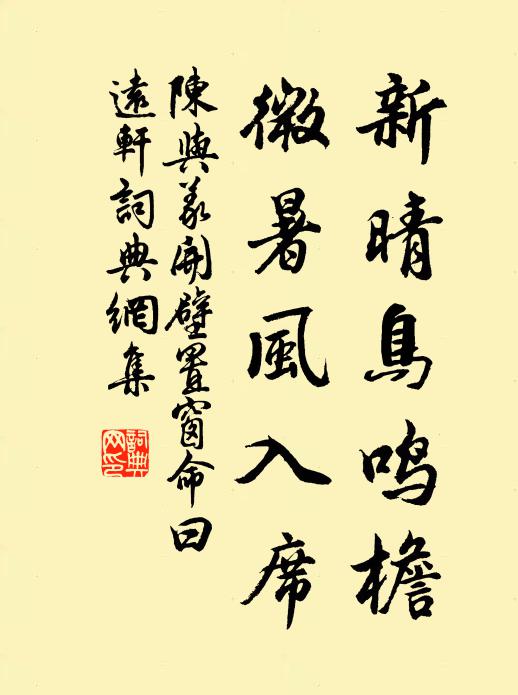 新晴鳥鳴檐
微暑風入席
陳與義開壁置窗命曰
遠軒詞典網集
詞典
网印